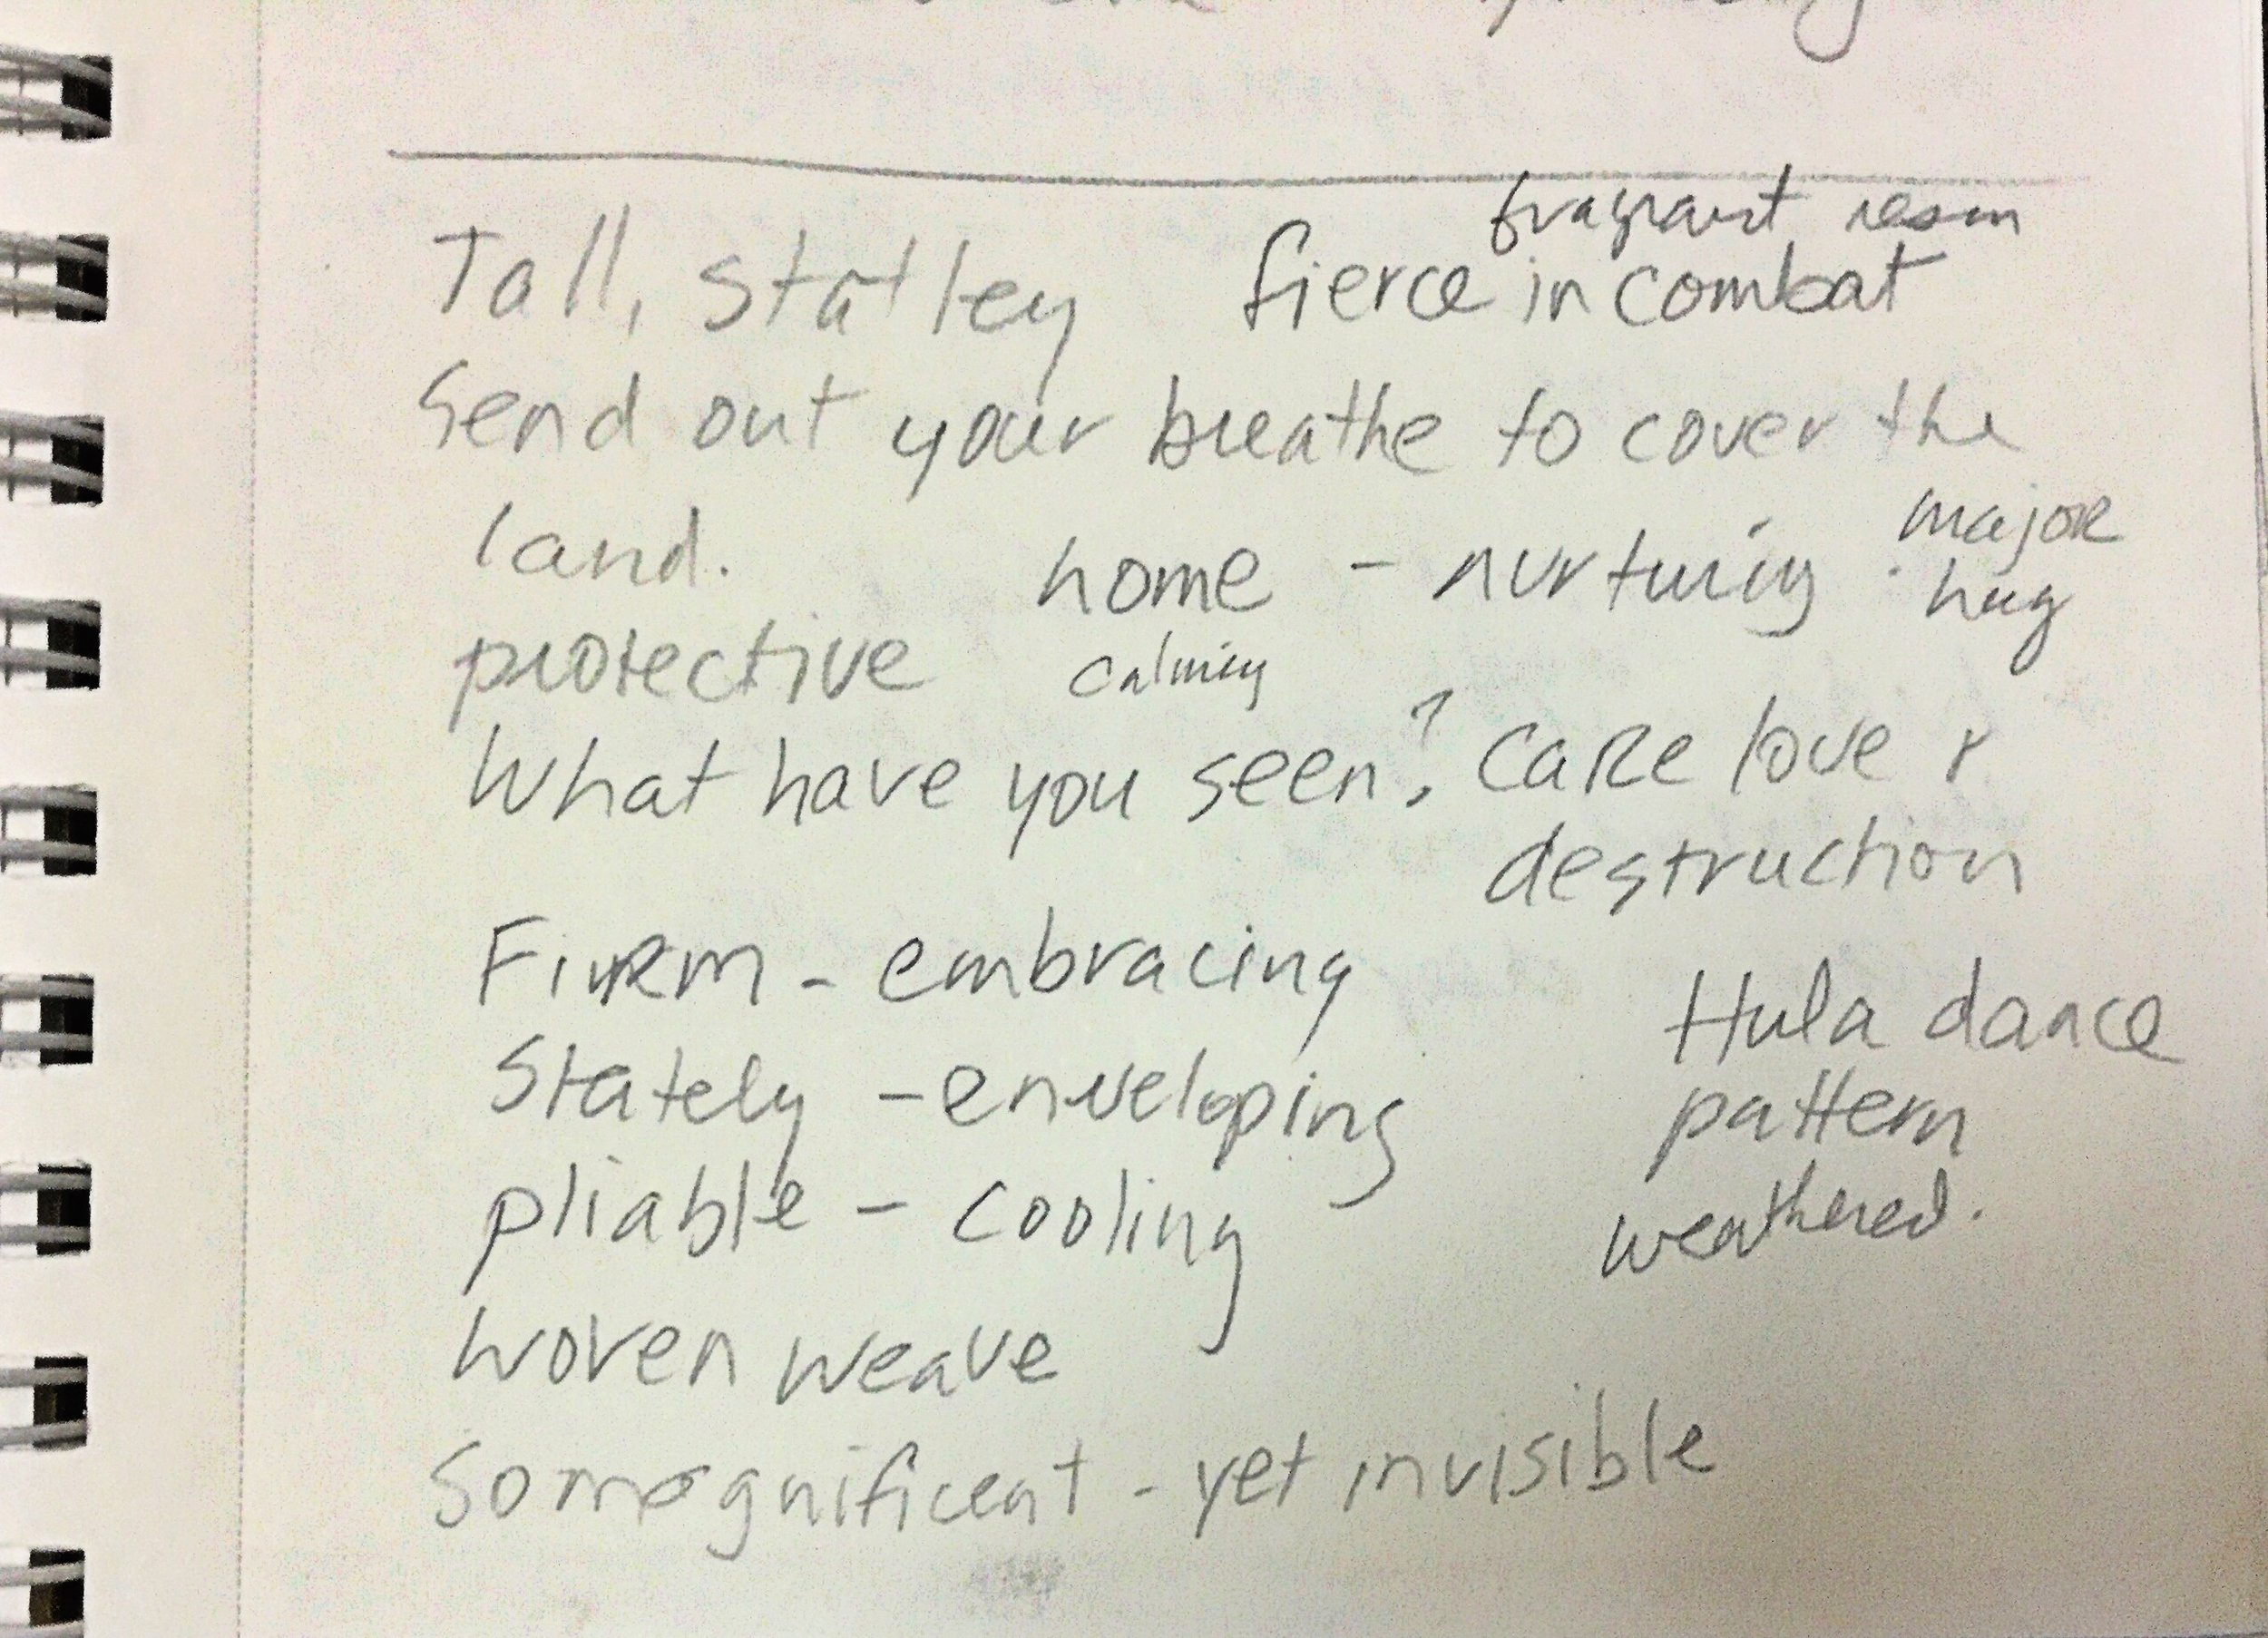 fragrant resin
Tall, statley fierce in combat
Send out your breathe to cover the
land. home - nurturing. major
hug
protective calming
What have you seen? Care love &
destruction
Firm - embracing
Stately - enveloping
Hula dance
pattern
weathered.
pliable - cooling
woven weave
So magnificent - yet invisible